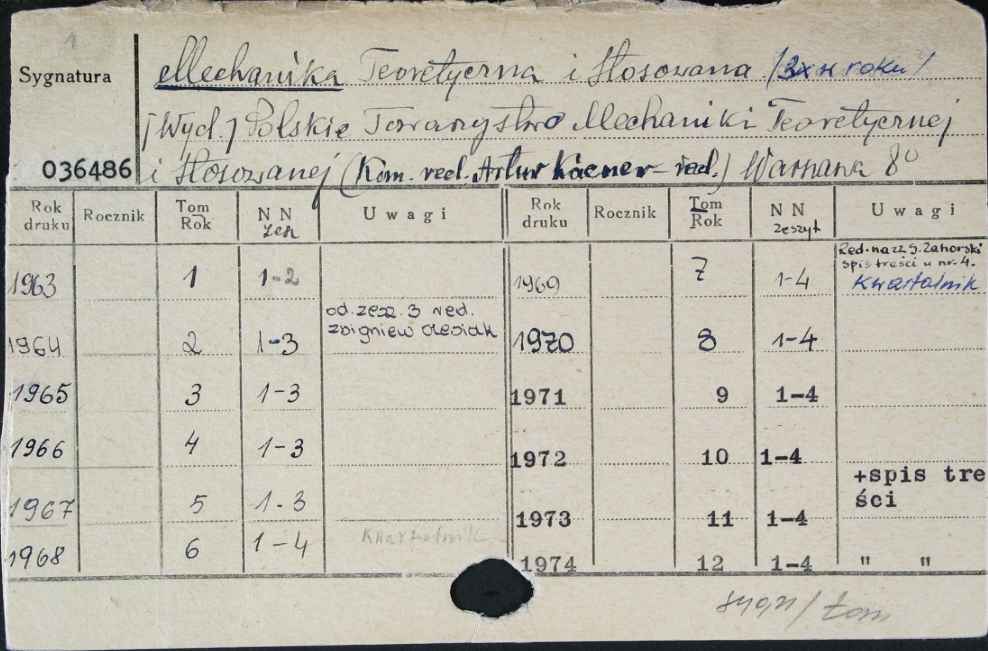 1
Sygnatura
Mechanika Teoretyczna i Stosowana /3x w roku/
[Wyd.] Polskie Towarzystwo Mechaniki Teoretycznej
036486 i Stosowanej (Kom. red. Artur Kacner - red.) Warszawa 8°
Rok druku Rocznik Tom Rok N N zesz Uwagi Rok druku Rocznik Tom Rok N N zeszyt Uwagi
1963 1 1-2 1969 7 1-4 Red. nacz. S. Zahorski spis treści w nr. 4. kwartalnik
1964 2 1-3 od zesz. 3 red. Zbigniew Olesiak 1970 8 1-4
1965 3 1-3 1971 9 1-4
1966 4 1-3 1972 10 1-4
1967 5 1-3 1973 11 1-4 +spis tre ści
1968 6 1-4 kwartalnik 1974 12 1-4 " "
sygn/tom